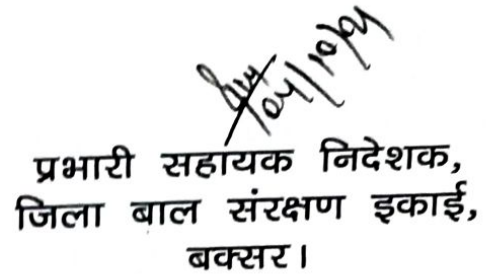 प्रभारी सहायक निदेशक,
जिला बाल संरक्षण इकाई,
बक्सर।